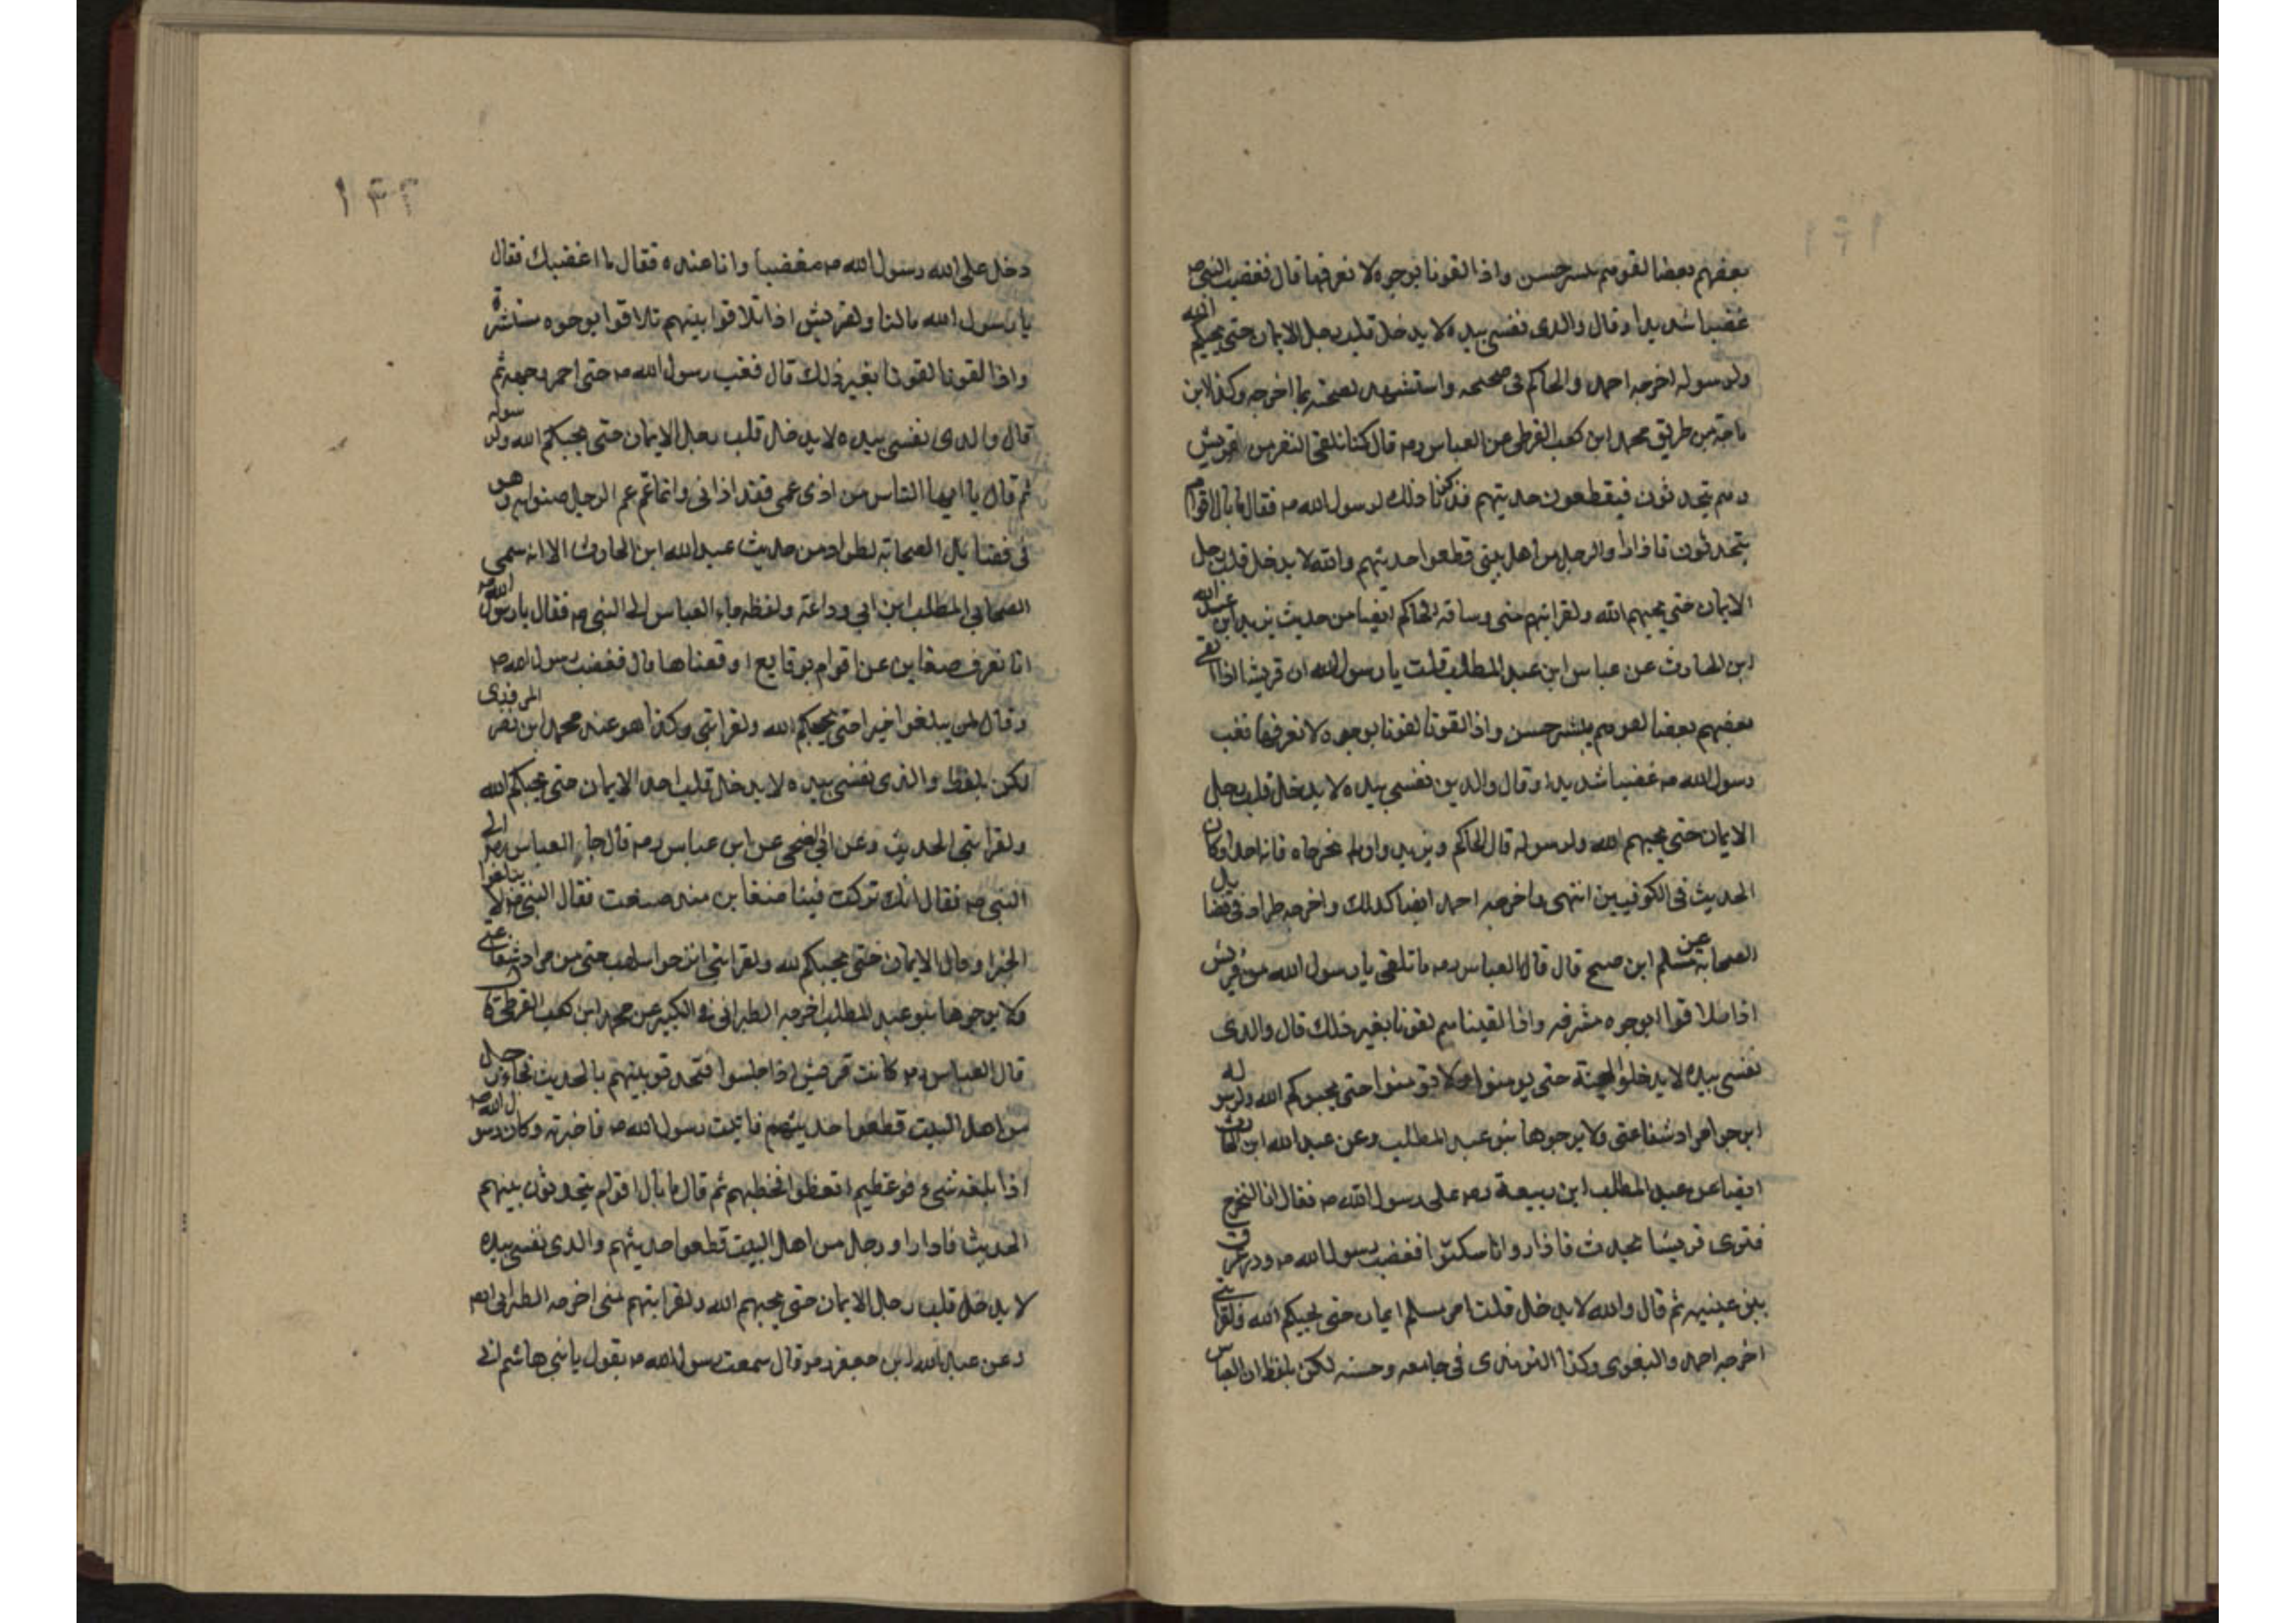 بعضهم بعضا لقوهم ببشر حسن واذا لقونا بوجوه لا نعرفها قال فغضب النبي صه
غضبا شديدا وقال والدى نفسي بيده لا يدخل قلب رجل الايمان حتى يحبكم الله
ولرسوله اخرجه احمد والحاكم في صحيحه واستشهد لصحته بما اخرجه وكذا ابن
ماجة من طريق محمد ابن كعب القرظي عن العباس رصه قال كنا نلقى النفر من قريش
وهم يتحدثون فيقطعون حديثهم فذكرنا ذلك لرسول الله صه فقال ما بال اقوام
يتحدثون فاذا راوا الرجل من اهل بيتي قطعوا حديثهم والله لا يدخل قلب رجل
الايمان حتى يحبهم الله ولقرابتهم منى وساقه الحاكم ايضا من حديث يزيد ابن عبد الله
ابن الحارث عن عباس ابن عبد المطلب قلت يا رسول الله ان قريشا اذا لقى
بعضهم بعضا لقوهم ببشر حسن واذا لقونا لقونا بوجوه لا نعرفها فغضب
رسول الله صه غضبا شديدا وقال والدين نفسي بيده لا يدخل قلب رجل
الايمان حتى يحبهم الله ولرسوله قال الحاكم ويزيد وان لم يخرجاه فانه احد اركان
الحديث في الكوفيين انتهى واخرجه احمد ايضا كدلك واخرجه طراد في فضايل
الصحابة عن مسلم ابن صبيح قال قال العباس رصه ما تلقى يا رسول الله من قريش
اذا تلاقوا بوجوه مشرفه واذا لقينا هم لقونا بغير ذلك قال والدى
نفسي بيده لا يدخلوا الجنة حتى يومنوا ولا تومنوا حتى يحبوكم الله ولرسوله
ايرجوا مراد شفاعتى ولا يرجوها بنو عبد المطلب وعن عبد الله ابن الحارث
ايضا عن عبد المطلب ابن ربيعة رصه على رسول الله صه فقال انا لنخرج
فنرى قريشا تحدث فاذا راونا سكتوا فغضب رسول الله صه ودر عرق
بين عينيه ثم قال والله لا يدخل قلب امر مسلم ايمان حتى يحبكم الله ولقرابتي
اخرجه احمد والبغوى وكذا الترمذى في جامعه وحسنه لكن بلفظ ان العباس
١٣٢
دخل على الله رسول الله صه مغضبا وانا عنده فقال ما اغضبك فقال
يا رسول الله ما لنا ولقريش اذا تلاقوا بينهم تلاقوا بوجوه مستبشرة
واذا لقونا لقونا بغير ذلك قال فغضب رسول الله صه حتى احمر وجهه ثم
قال والدى نفسي بيده لا يدخل قلب رجل الايمان حتى يحبكم الله ولرسوله
ثم قال يا ايها الناس من اذى عمى فقد اذانى وانما عم الرجل صنو ابيه وهو
في فضايل الصحابة لطراد من حديث عبد الله ابن الحارث الا انه سمى
الصحابي المطلب ابن ابي وداعة ولفظه جاء العباس الى النبي صه فقال يا رسول الله صه
انا نعرف ضغاين عن اقوام بوقايع اوقعناها قال فغضب رسول الله صه
وقال لن يبلغوا خيرا حتى يحبكم الله ولقرابتى وكذا هو عند محمد ابن نصر المروزى
لكن بلفظ والذى نفسي بيده لا يدخل قلب احد الايمان حتى يحبكم الله
ولقرابتى الحديث وعن ابي الضحى عن ابن عباس رصه قال جاء العباس رصه الى
النبي صه فقال انك تركت فينا ضغاين منذ صنعت فقال النبي صه لا يبلغوا
الخير او قال الايمان حتى يحبكم لله ولقرابتى اترجوا سلهب حتى من مراد شفاعتى
ولا يرجوها بنو عبد المطلب اخرجه الطبرانى في الكبير عن محمد ابن كعب القرظي قال
قال العباس رصه كانت قريش اذا جلسوا فتحدثو بينهم بالحديث فجاء رجل
من اهل البيت قطعوا حديثهم فاتيت رسول الله صه فاخبرته وكان رسول الله صه
اذا بلغه شىء فوعظهم اتعظوا فخطبهم ثم قال ما بال اقوام يتحدثون بينهم
الحديث فاذا راوا رجل من اهل البيت قطعوا حديثهم والدى نفسي بيده
لا يدخل قلب رجل الايمان حتى يحبهم الله ولقرابتهم منى اخرجه الطبرانى ايضا
وعن عبد الله ابن جعفر رصه قال سمعت رسول الله صه يقول يا بني هاشم انى